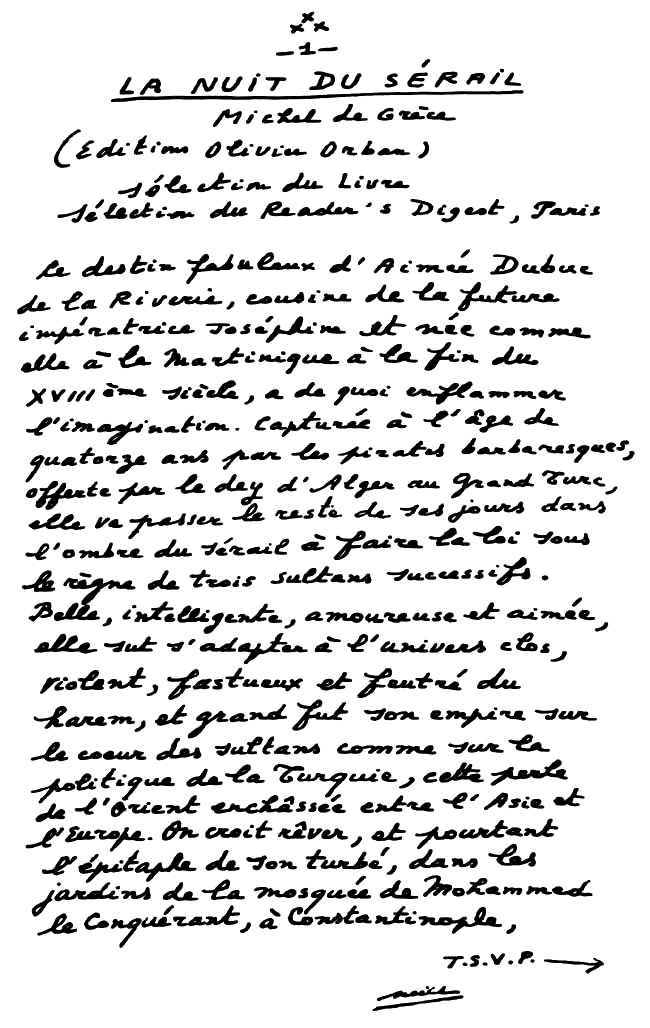 xxx
-1-
LA NUIT DU SÉRAIL
Michel de Grèce
(Editions Olivier Orban)
sélection du Livre
sélection du Reader's Digest, Paris
Le destin fabuleux d'Aimée Dubuc
de la Riverie, cousine de la future
impératrice Joséphine et née comme
elle à la Martinique à la fin du
XVIIIème siècle, a de quoi enflammer
l'imagination. Capturée à l'âge de
quatorze ans par les pirates barbaresques,
offerte par le dey d'Alger au Grand Turc,
elle va passer le reste de ses jours dans
l'ombre du sérail à faire la loi sous
le règne de trois sultans successifs.
Belle, intelligente, amoureuse et aimée,
elle sut s'adapter à l'univers clos,
violent, fastueux et feutré du
harem, et grand fut son empire sur
le coeur des sultans comme sur la
politique de la Turquie, cette perle
de l'Orient enchâssée entre l'Asie et
l'Europe. On croit rêver, et pourtant
l'épitaphe de son turbé, dans les
jardins de la mosquée de Mohammed
le Conquérant, à Constantinople,
T.S.V.P. →